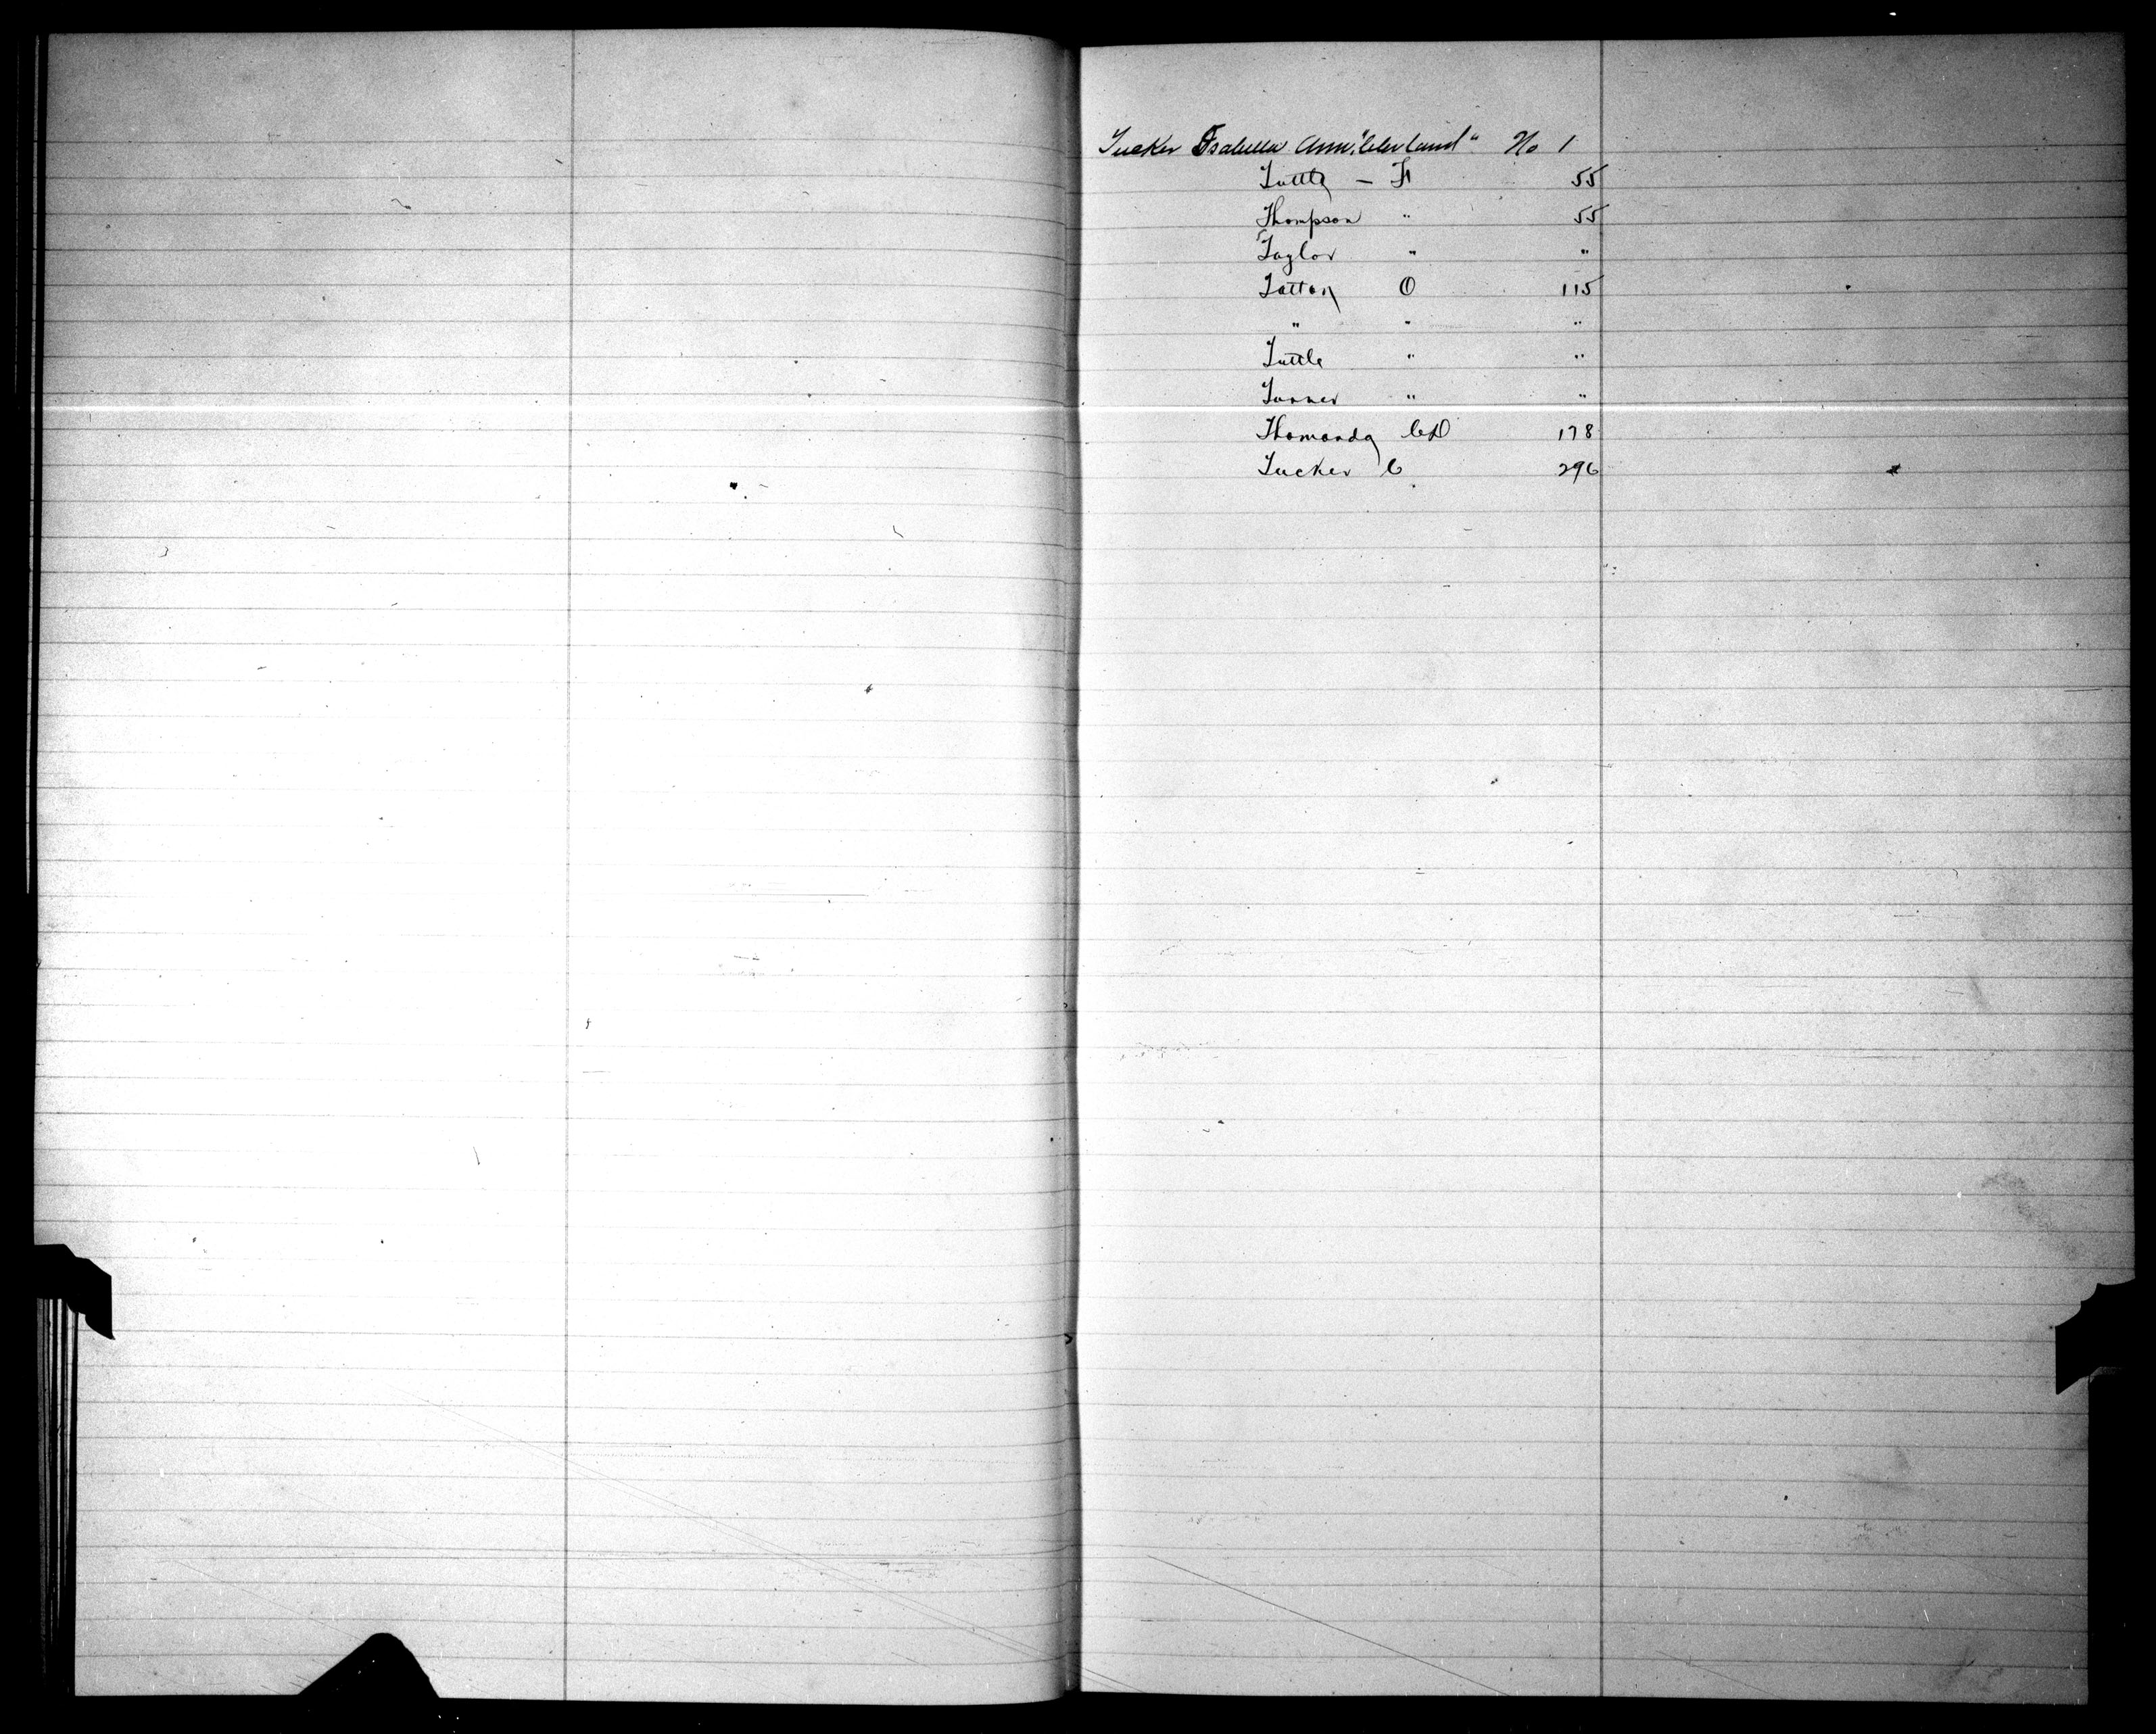 Tucker Isabella Ann "Cleveland" No 1
Tuttle — F 55
Thompson " 55
Taylor " "
Totton O 115
" " "
Tuttle " "
Tanner " "
178
Tucker C 296